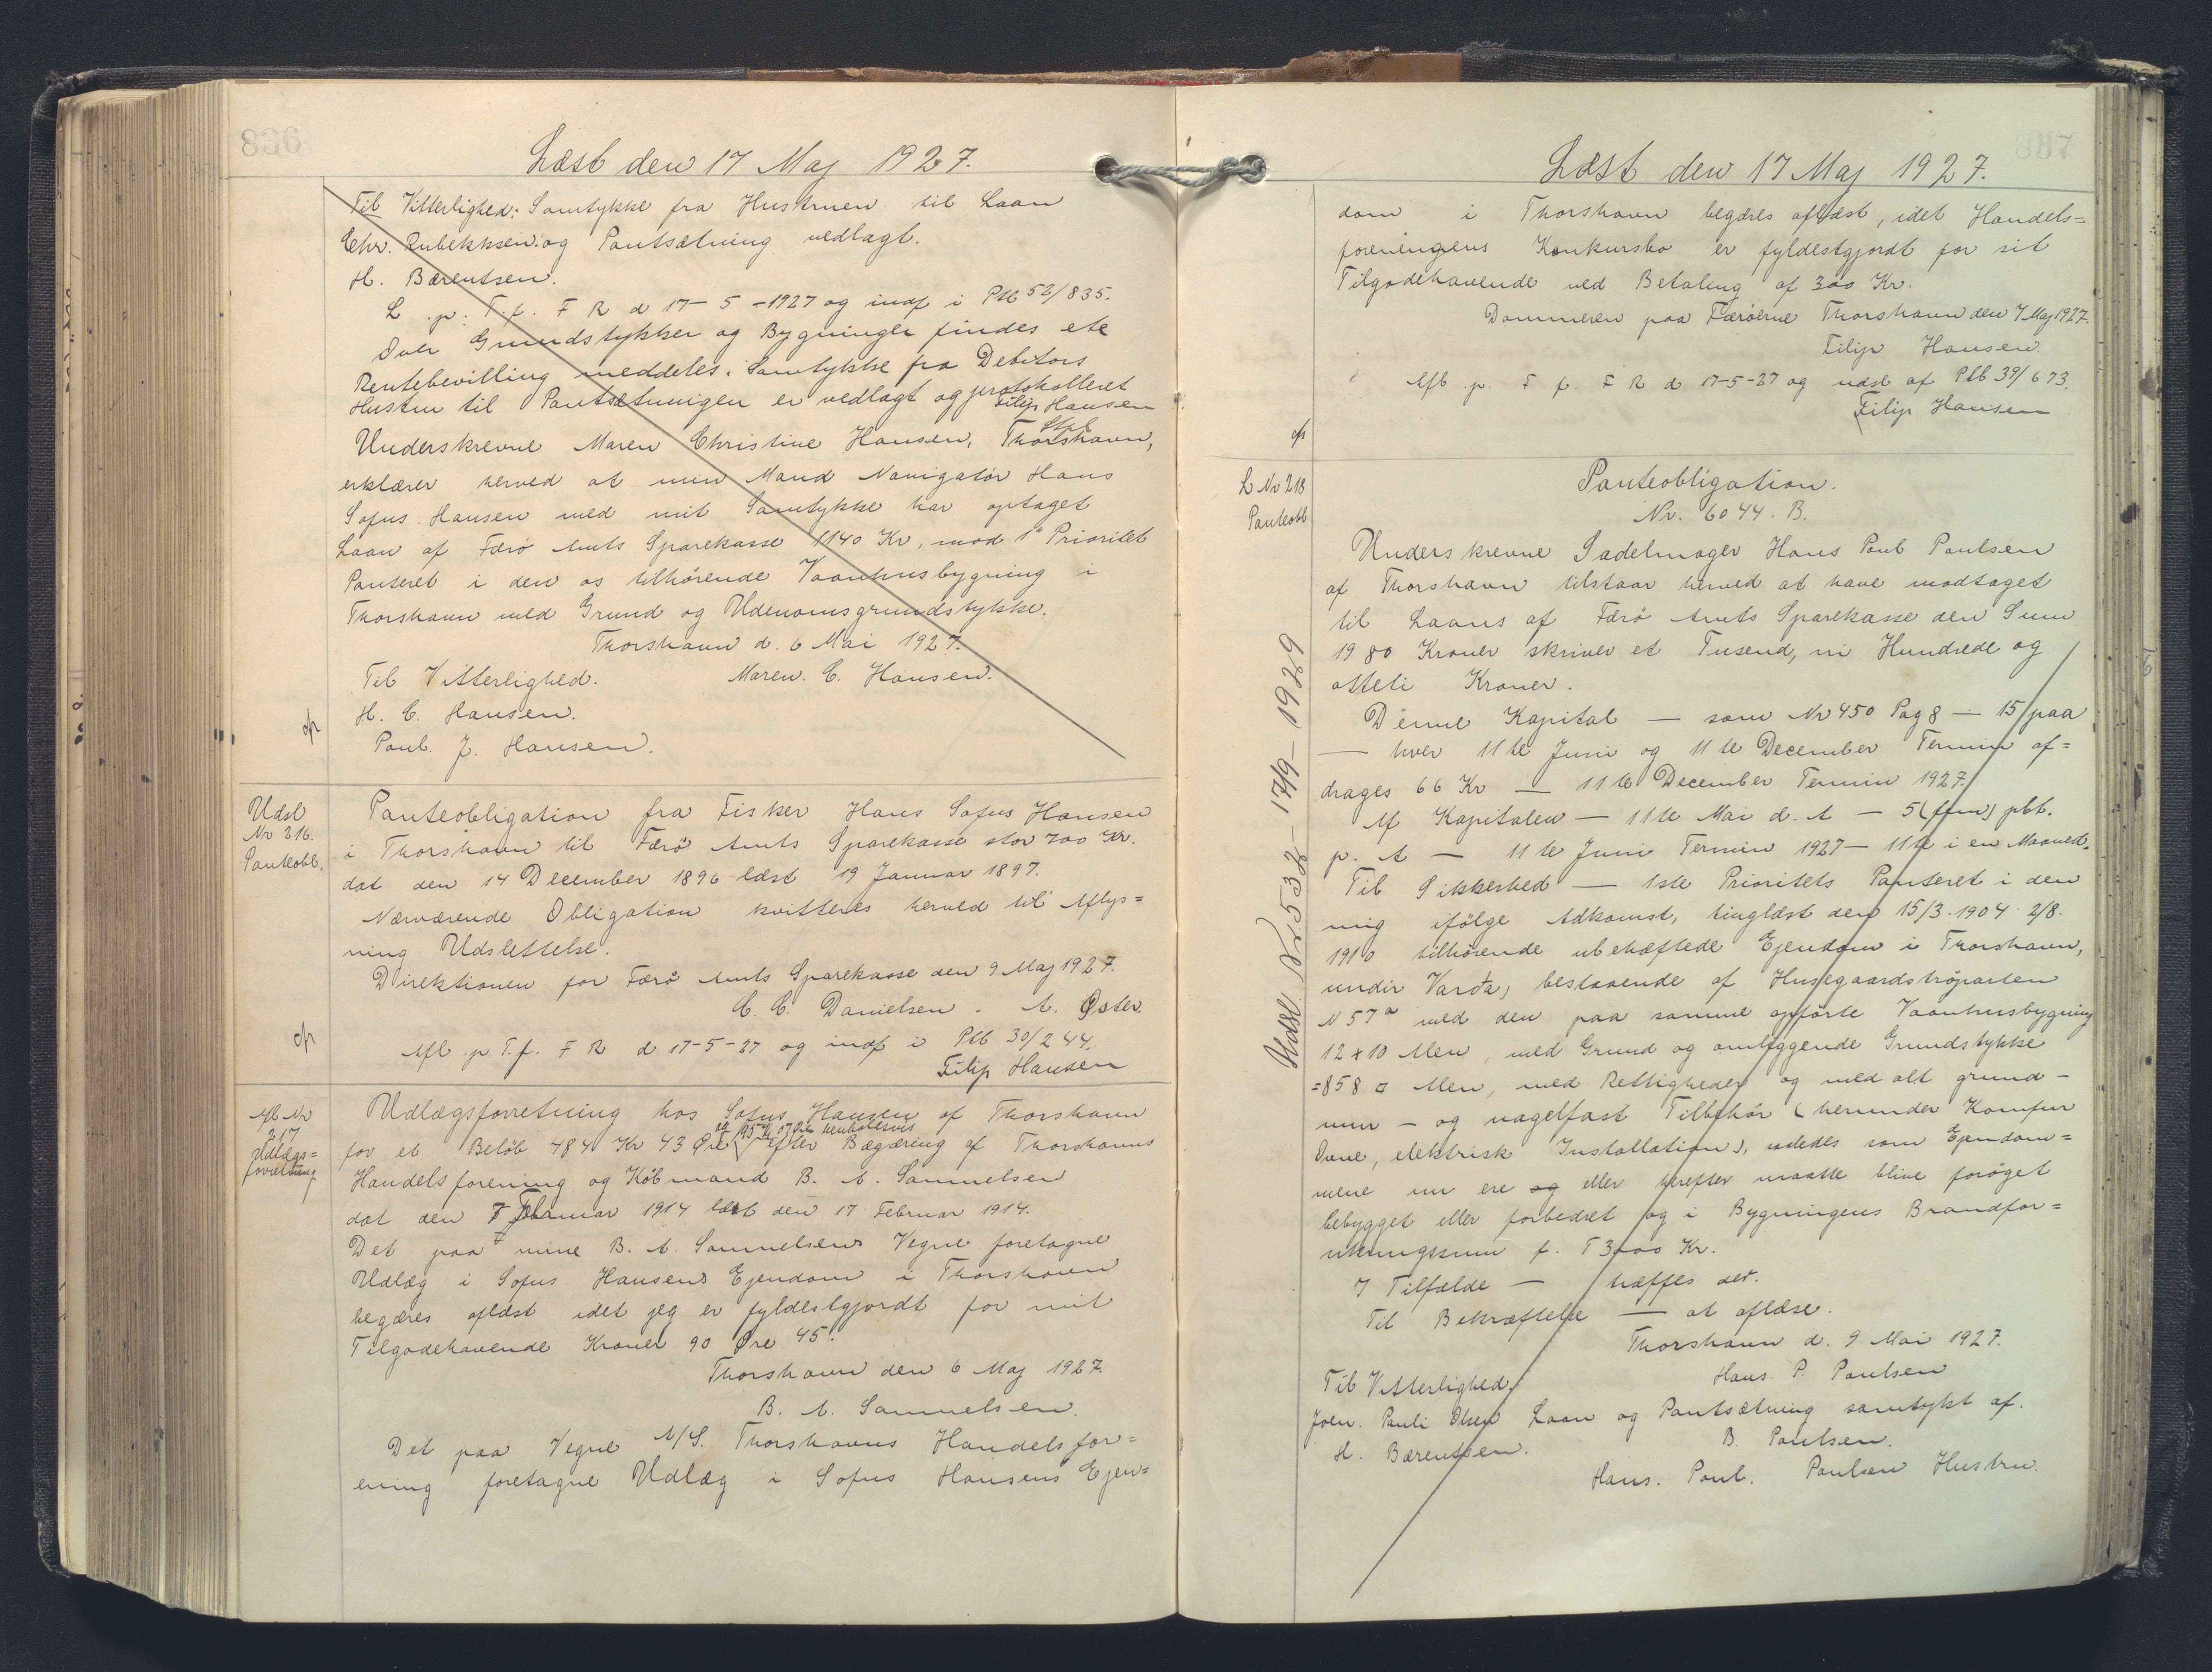 836
Læst den 17 Maj 1927.
Til Vitterlighed: Samtykke fra Hustruen til Laan
Chr. Rubekksen. og Pantsætning vedlagt.
H. Bærentsen.
L. p. T. f. F R d 17-5-1927 og indf i Ptb 52/835.
Over Grundstykker og Bygninger findes ete
Rentebevilling meddeles. Samtykke fra Debitors
Hustru til Pantsætningen er vedlagt og protokolleret
Filip Hansen
Underskrevne Maren Christine Hansen, Thorshavn,
erklærer herved at min Mand Navigatør Hans
Sofus Hansen med mit Samtykke har optaget
Laan af Færø Amts Sparekasse 1140 Kr, mod 1ste Prioritet
Panteret i den os tilhørende Vaanhusbygning i
Thorshavn med Grund og Udenomsgrundstykke.
Thorshavn d. 6 Mai 1927.
Til Vitterlighed. Maren. C. Hansen.
H. C. Hansen.
Poul. J. Hansen.
Udsl
Nr 216.
Panteobl.
Panteobligation fra Fisker Hans Sofus Hansen
i Thorshavn til Færø Amts Sparekasse stor 700 Kr.
dat den 14 December 1896 læst 19 Januar 1897.
Nærværende Obligation kvitteres herved til Aflys=
ning Udslettelse.
Direktionen for Færø Amts Sparekasse den 9 Maj 1927.
C. C. Danielsen. A. Øster.
Afl. p T. f. F R d 17-5-27 og indf i Ptb 30/244.
Filip Hansen
Afl Nr
217
Udlægs=
forretning
Udlægsforretning hos Sofus Hansen af Thorshavn
for et Beløb 484 Kr 43 Øre efter Begæring af Thorshavns
Handelsforening og Købmand B. A. Samuelsen
dat den 7 Februar 1914 læst den 17 Februar 1914.
Det paa mine B. A. Samuelsens Vegne foretagne
Udlæg i Sofus Hansens Ejendom i Thorshavn
begæres aflæst idet jeg er fyldestgjordt for mit
Tilgodehavende Kroner 90 Øre 45.
Thorshavn den 6 Maj 1927.
B. A. Samuelsen.
Det paa Vegne A/S. Thorshavns Handelsfor=
ening foretagne Udlæg i Sofus Hansens Ejen=
837
Læst den 17 Maj 1927.
dom i Thorshavn begæres aflæst, idet Handels=
foreningens Konkursbo er fyldestgjordt for sit
Tilgodehavende ved Betaling af 300 Kr.
Dommeren paa Færøerne Thorshavn den 7 Maj 1927.
Filip Hansen.
Afl. p. T f. F R d 17-5-27 og udsl af Ptb 39/673.
Filip Hansen
L Nr 218
Panteobl
Panteobligation.
Nr. 6044. B.
Underskrevne Sadelmager Hans Poul Poulsen
af Thorshavn tilstaar herved at have modtaget
til Laans af Færø Amts Sparekasse den Sum
1980 Kroner skriver et Tusend, ni Hundrede og
otteti Kroner.
Denne Kapital — som Nr 450 Pag 8 — 15 paa
— hver 11te Juni og 11te December Termin af=
drages 66 Kr — 11te December Termin 1927.
Af Kapitalen — 11te Mai d. A — 5 (fem) pCt.
p. A — 11te Juni Termin 1927 — 11te i en Maaned.
Til Sikkerhed — 1ste Prioritets Panteret i den
mig ifølge Adkomst, tinglæst den 15/3-1904 2/8.
1910 tilhørende ubehæftede Ejendom i Thorshavn,
undir Varða, bestaaende af Husegaardstrøparten
N 57a med den paa samme opførte Vaanhusbygning
12 x 10 Alen, med Grund og omliggende Grundstykke
=858 □ Alen, med Rettigheder og med alt grund-
mur - og nagelfast Tilbehør (herunder Komfur
Ovne, elektrisk Installation), saledes som Ejendom=
mene nu ere og eller herefter maatte blive forøget
bebygget eller forbedret og i Bygningens Brandfor=
sikringssum f. T 3000 Kr.
I Tilfælde — træffes der.
Til Bekræftelse — at aflæse.
Thorshavn d. 9 Mai 1927.
Til Vitterlighed. Hans P. Poulsen
Joen. Pauli Olsen Laan og Pantsætning samtykt af.
H. Bærentsen. B. Poulsen.
Hans. Poul. Poulsen Hustru.
Udsl. Nr. 532 - 17/9-1929